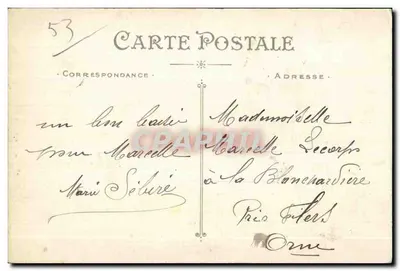 53
CARTE POSTALE
CORRESPONDANCE
ADRESSE
un bon baiser
pour Marcelle
Marie Sébiré
Mademoiselle
Marcelle Lecorps
à la Blanchardière
Près Flers
Orne